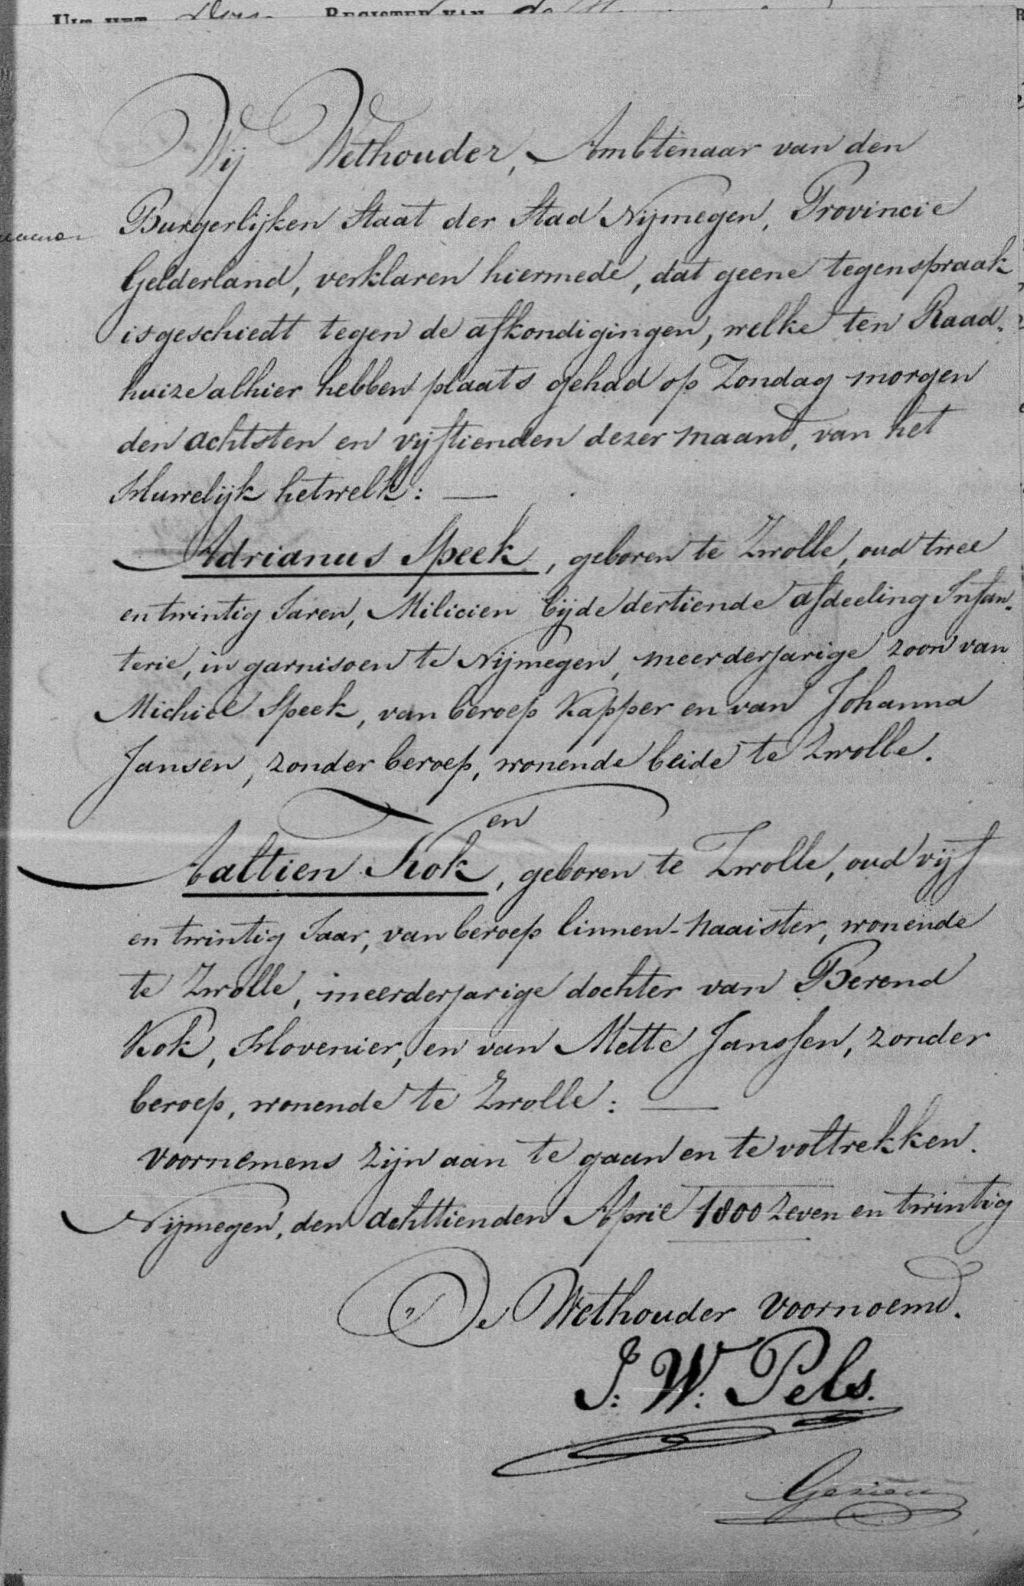 UIT HET REGISTER VAN de
Wij Wethouder, Ambtenaar van den
Burgerlijken Staat der Stad Nijmegen, Provincie
Gelderland, verklaren hiermede, dat geene tegenspraak
is geschiedt tegen de afkondigingen, welke ten Raad-
huize alhier hebben plaats gehad op Zondag morgen
den achtsten en vijftienden dezer maand, van het
Huwelijk hetwelk: —
Adrianus Speek, geboren te Zwolle, oud twee
en twintig Jaren, Milicien bij de dertiende afdeeling Infan-
terie, in garnisoen te Nijmegen, meerderjarige zoon van
Michiel Speek, van beroep Kapper en van Johanna
Jansen, zonder beroep, wonende beide te Zwolle.
en
Aaltien Kok, geboren te Zwolle, oud vijf
en twintig Jaar, van beroep linnen-Naaister, wonende
te Zwolle, meerderjarige dochter van Berend
Kok, Hovenier, en van Mette Janssen, zonder
beroep, wonende te Zwolle: —
voornemens zijn aan te gaan en te voltrekken.
Nijmegen, den achttienden April 1800 zeven en twintig
De Wethouder voornoemd.
J: W: Pels.
Gezien